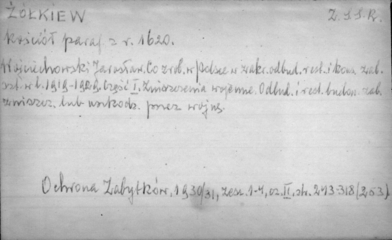 ŻÓŁKIEW Z.S.S.R.
Kościół paraf. z r. 1620.
Wojciechowski Jarosław. Co zrob. w Polsce w zakr. odbud. rest. i kons. zab.
szt. w l. 1919-1929, część I. Zniszczenia wojenne. Odbud. i rest. budow. zab.
zniszcz. lub uszkodz. przez wojnę.
Ochrona Zabytków, 1930/31, zesz. 1-4, cz. II, str. 243-318 (263)